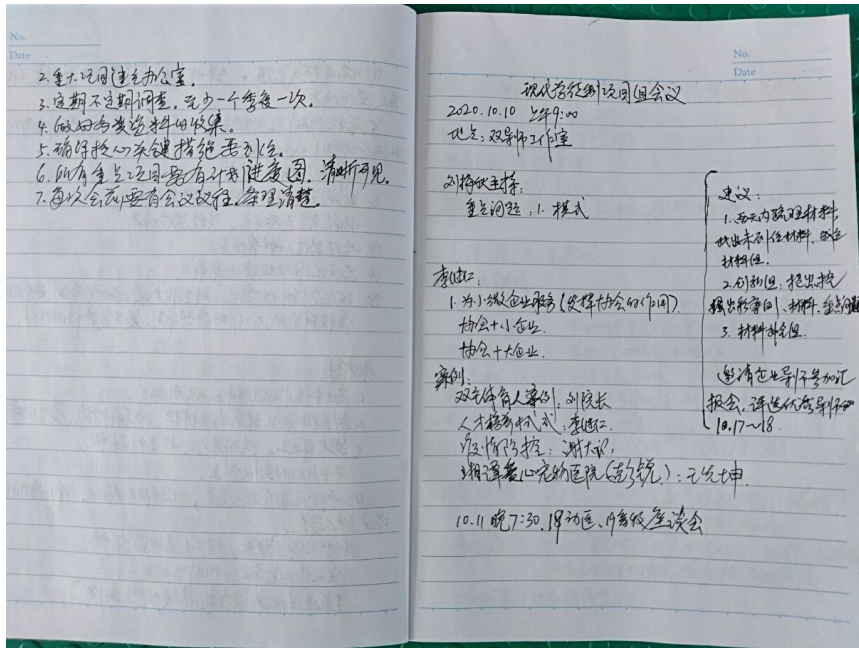 No.
Date
2.重大项目建立办公室.
3.定期不定期调查,至少一个季度一次。
4.做好各类资料的收集。
5.确保核心关键措施要到位。
6.所有重点项目要有计划进度图,清晰可见。
7.每次会前要有会议议程,条理清楚.
No.
Date
现代学徒制项目组会议
2020.10.10 上午9:00
地点:双导师工作室
主持:
重点问题:1.模式
李健仁:
1.为小微企业服务(发挥协会的作用).
协会+小企业.
协会+大企业.
案例:
双主体育人案例:刘院长
人才培养模式:李健仁.
疫情防控:谢大
爱心宠物医院(彭锐):王光坤.
10.11晚7:30.18动医、19高级座谈会
建议:
1.两天内整理材料,
找出未到位材料.
材料组.
2.创新组:挖掘
案例、材料.重点问题
3.材料组.
邀请企业导师参加汇
报会,评选优秀导师
10.17~18.